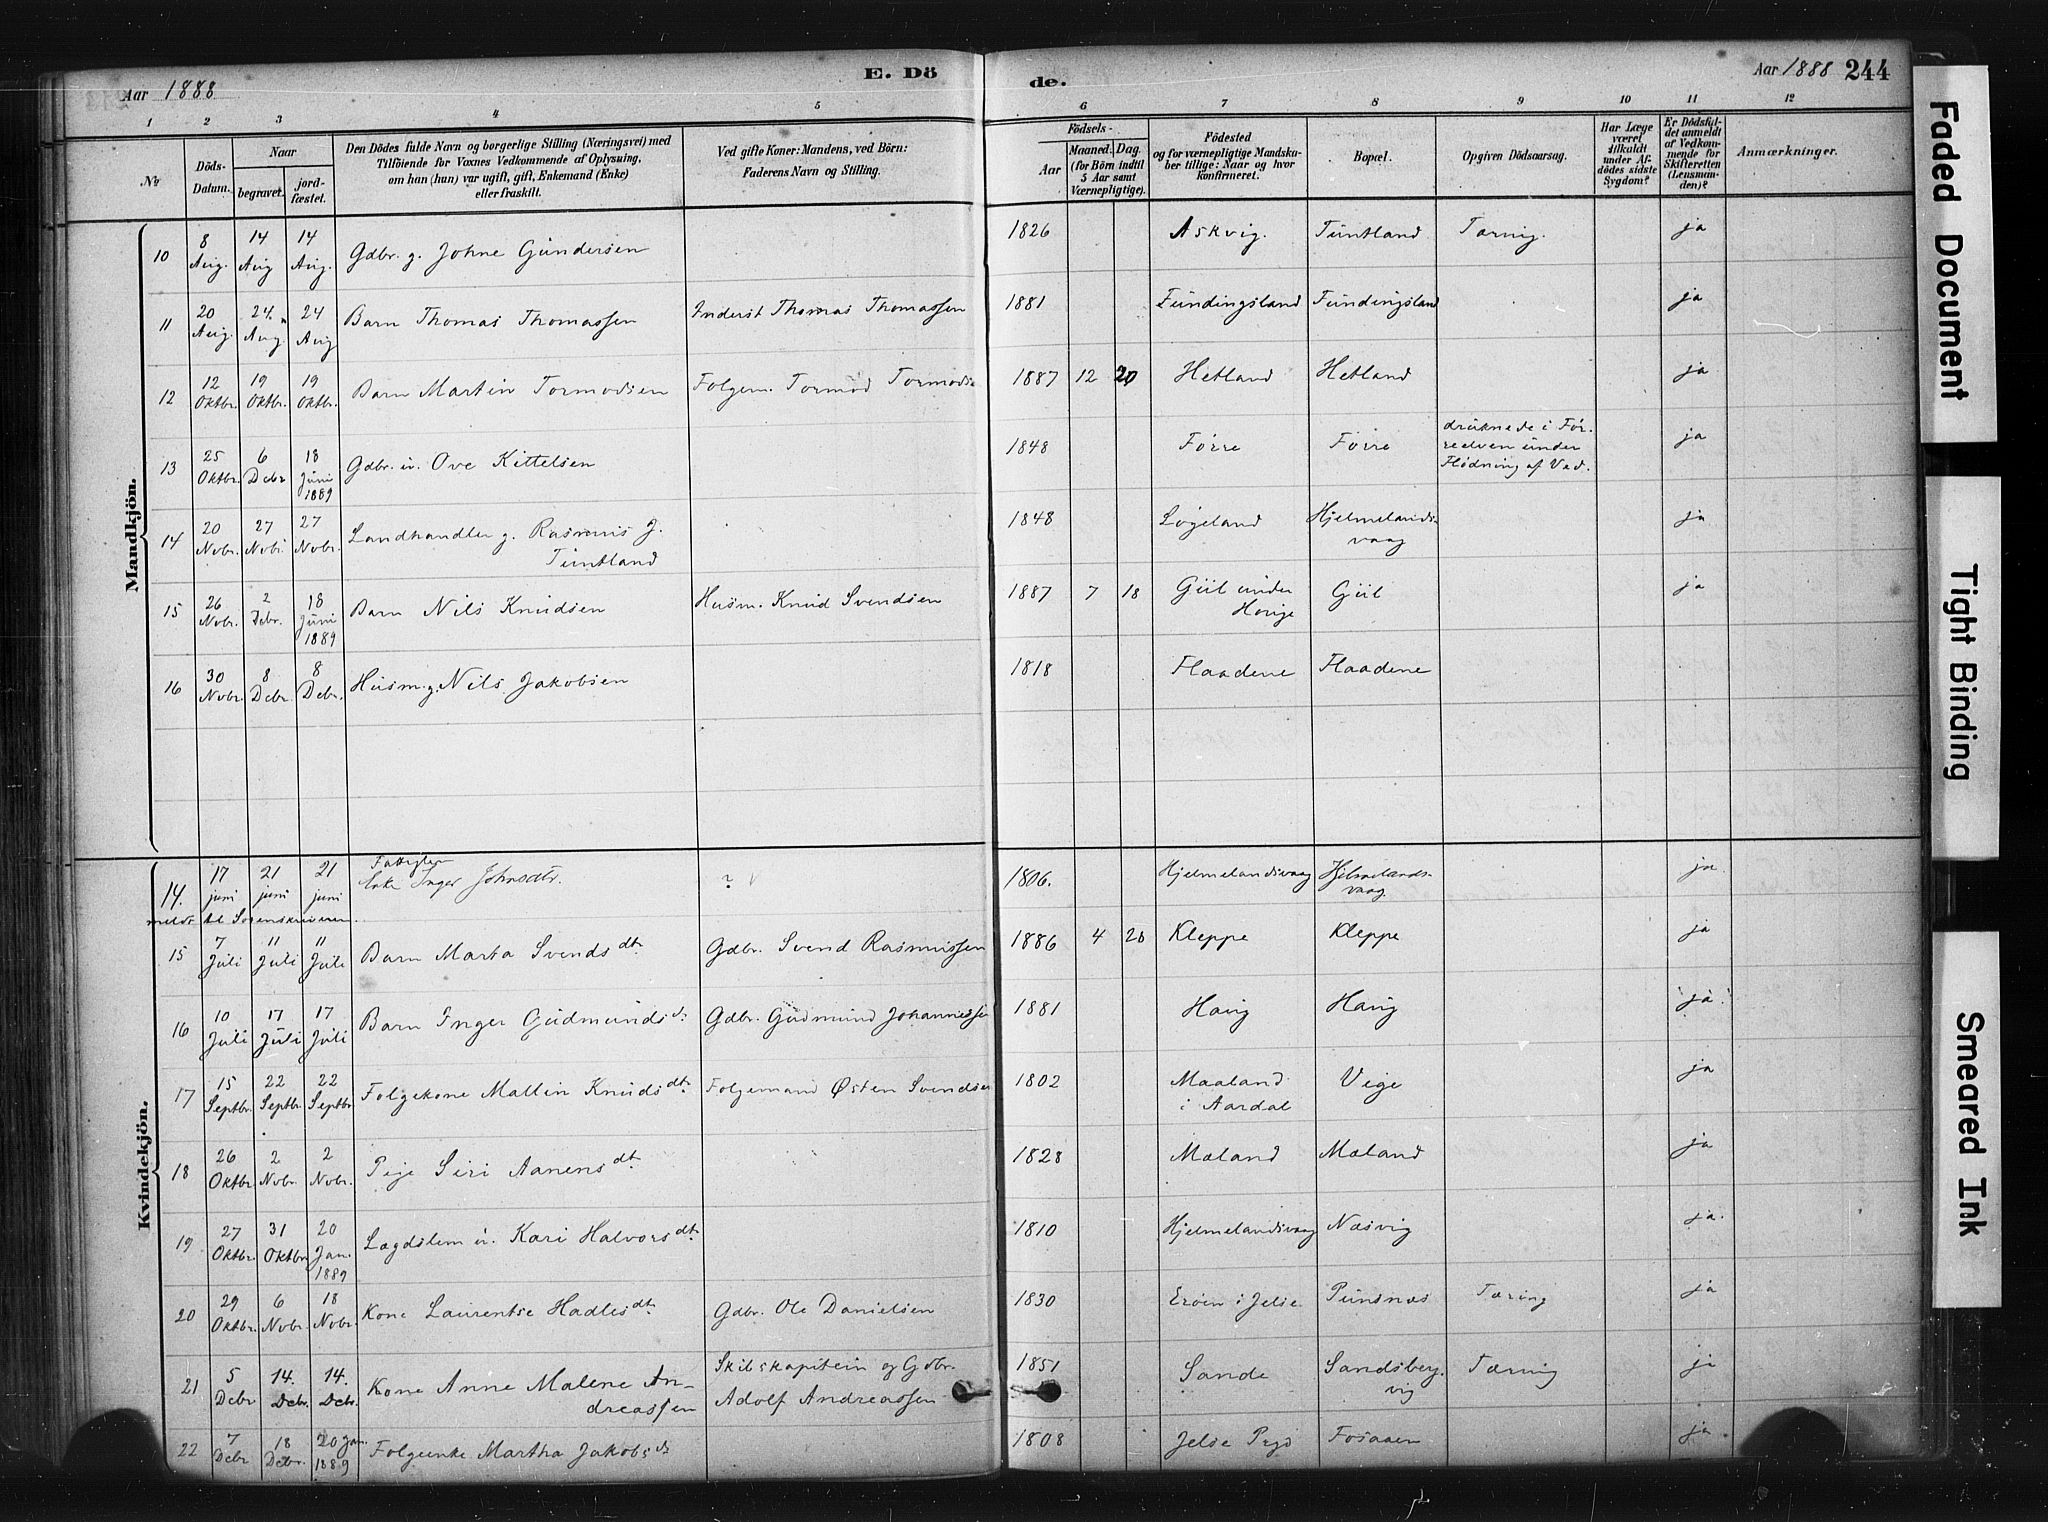 E. Dö
de.
Aar 1888
Aar 1888 244
1 2 3 4 5 6 7 8 9 10 11 12
No
Döds-Datum.
Naar
begravet.
jord-fæstet.
Den Dödes fulde Navn og borgerlige Stilling (Næringsvei) med
Tilföiende for Voxnes Vedkommende af Oplysning,
om han (hun) var ugift, gift, Enkemand (Enke)
eller fraskilt.
Ved gifte Koner: Mandens, ved Börn:
Faderens Navn og Stilling.
Födsels-
Aar
Maaned. Dag.
(for Börn indtil
5 Aar samt
Værnepligtige).
Födested
og for værnepligtige Mandska-
ber tillige: Naar og hvor
konfirmeret.
Bopæl.
Opgiven Dödsaarsag.
Har Læge
været
tilkaldt
under Af-
dödes sidste
Sygdom?
Er Dödsfal-
det anmeldt
af Vedkom-
mende for
Skifteretten
(Lensman-
den)?
Anmærkninger.
Mandkjön.
10 8 Aug. 14 Aug 14 Aug. Gdbr. g. Johne Gundersen 1826 Askvig. Tuntland Tæring. ja
11 20 Aug. 24. Aug. 24 Aug Barn Thomas Thomassen Inderst Thomas Thomassen 1881 Fundingsland Fundingsland ja
12 12 Oktbr. 19 Oktbr. 19 Oktbr. Barn Martin Tormodsen Folgem. Tormod Tormods 1887 12 20 Hetland Hetland ja
13 25 Oktbr. 6 Debr 18 Juni 1889 Gdbr. u. Ove Kittelsen 1848 Førre Førre druknede i Før-
reelven under
Flødning af Ved. ja
14 20 Nobr. 27 Nobr. 27 Nobr. Landhandler g. Rasmus G.
Tuntland 1848 Løgeland Hjelmelands-
vaag ja
15 26 Nobr. 2 Debr. 18 Juni 1889 Barn Nils Knudsen Husm. Knud Svendsen 1887 7 18 Giil under
Hauge Giil ja
16 30 Nobr. 8 Debr 8 Debr. Husm. g. Nils Jakobsen 1818 Flaadene Flaadene
Kvindekjön.
14. 17 juni 21 juni 21 juni Enke Inger Johnsdtr. ? 1806. Hjelmelandsvaag Hjelmelands-
vaag ja
meldt til Sorenskriveren
15 7 Juli 11 Juli 11 Juli Barn Marta Svendsdtr. Gdbr. Svend Rasmussen 1886 4 28 Kleppe Kleppe ja
16 10 Juli 17 Juli 17 Juli Barn Inger Gudmundsd. Gdbr. Gudmund Johannessen 1881 Haug Haug ja
17 15 Septbr. 22 Septbr. 22 Septbr Folgekone Mallin Knudsdtr. Folgemand Østen Svendsen 1802 Maaland
i Aardal Vige ja
18 26 Oktbr. 2 Nobr. 2 Nobr. Pige Siri Aanensdtr. 1828 Mæland Mæland ja
19 27 Oktbr. 31 Oktbr 20 Jan. 1889 Lægdslem u. Kari Halvorsdtr. 1810 Hjelmelandsvaag Næsvig ja.
20 29 Oktbr. 6 Nobr. 18 Nobr. Kone Laurentse Hadlesdtr. Gdbr. Ole Danielsen 1830 Erøen i Jelse Pundsnæs Tæring ja
21 5 Debr 14. Debr. 14. Debr. Kone Anne Malene An-
dreassen Skibskapitein og Gdbr.
Adolf Andreassen 1851 Sande Sandsberg
vig Tæring ja
22 7 Debr 18 Debr. 20 Jan. 1889 Folgeenke Martha Jakobsd. 1808 Jelse Pgd Fosaaen ja
Faded Document
Tight Binding
Smeared Ink